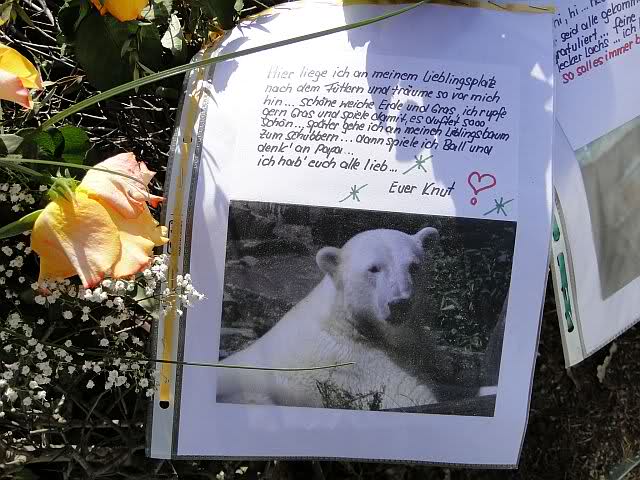 Hier liege ich an meinem Lieblingsplatz
nach dem Füttern und träume so vor mich
hin... schöne weiche Erde und Gras, ich rupfe
gern Gras und spiele damit, es duftet sooo
schön.. später gehe ich an meinen Lieblingsbaum
zum schubbern... dann spiele ich Ball und
denk' an Papa...
ich hab' euch alle lieb...
Euer Knut
hi, hi...
seid alle gekomm
gratuliert...
ecker Lachs...
so soll es immer b